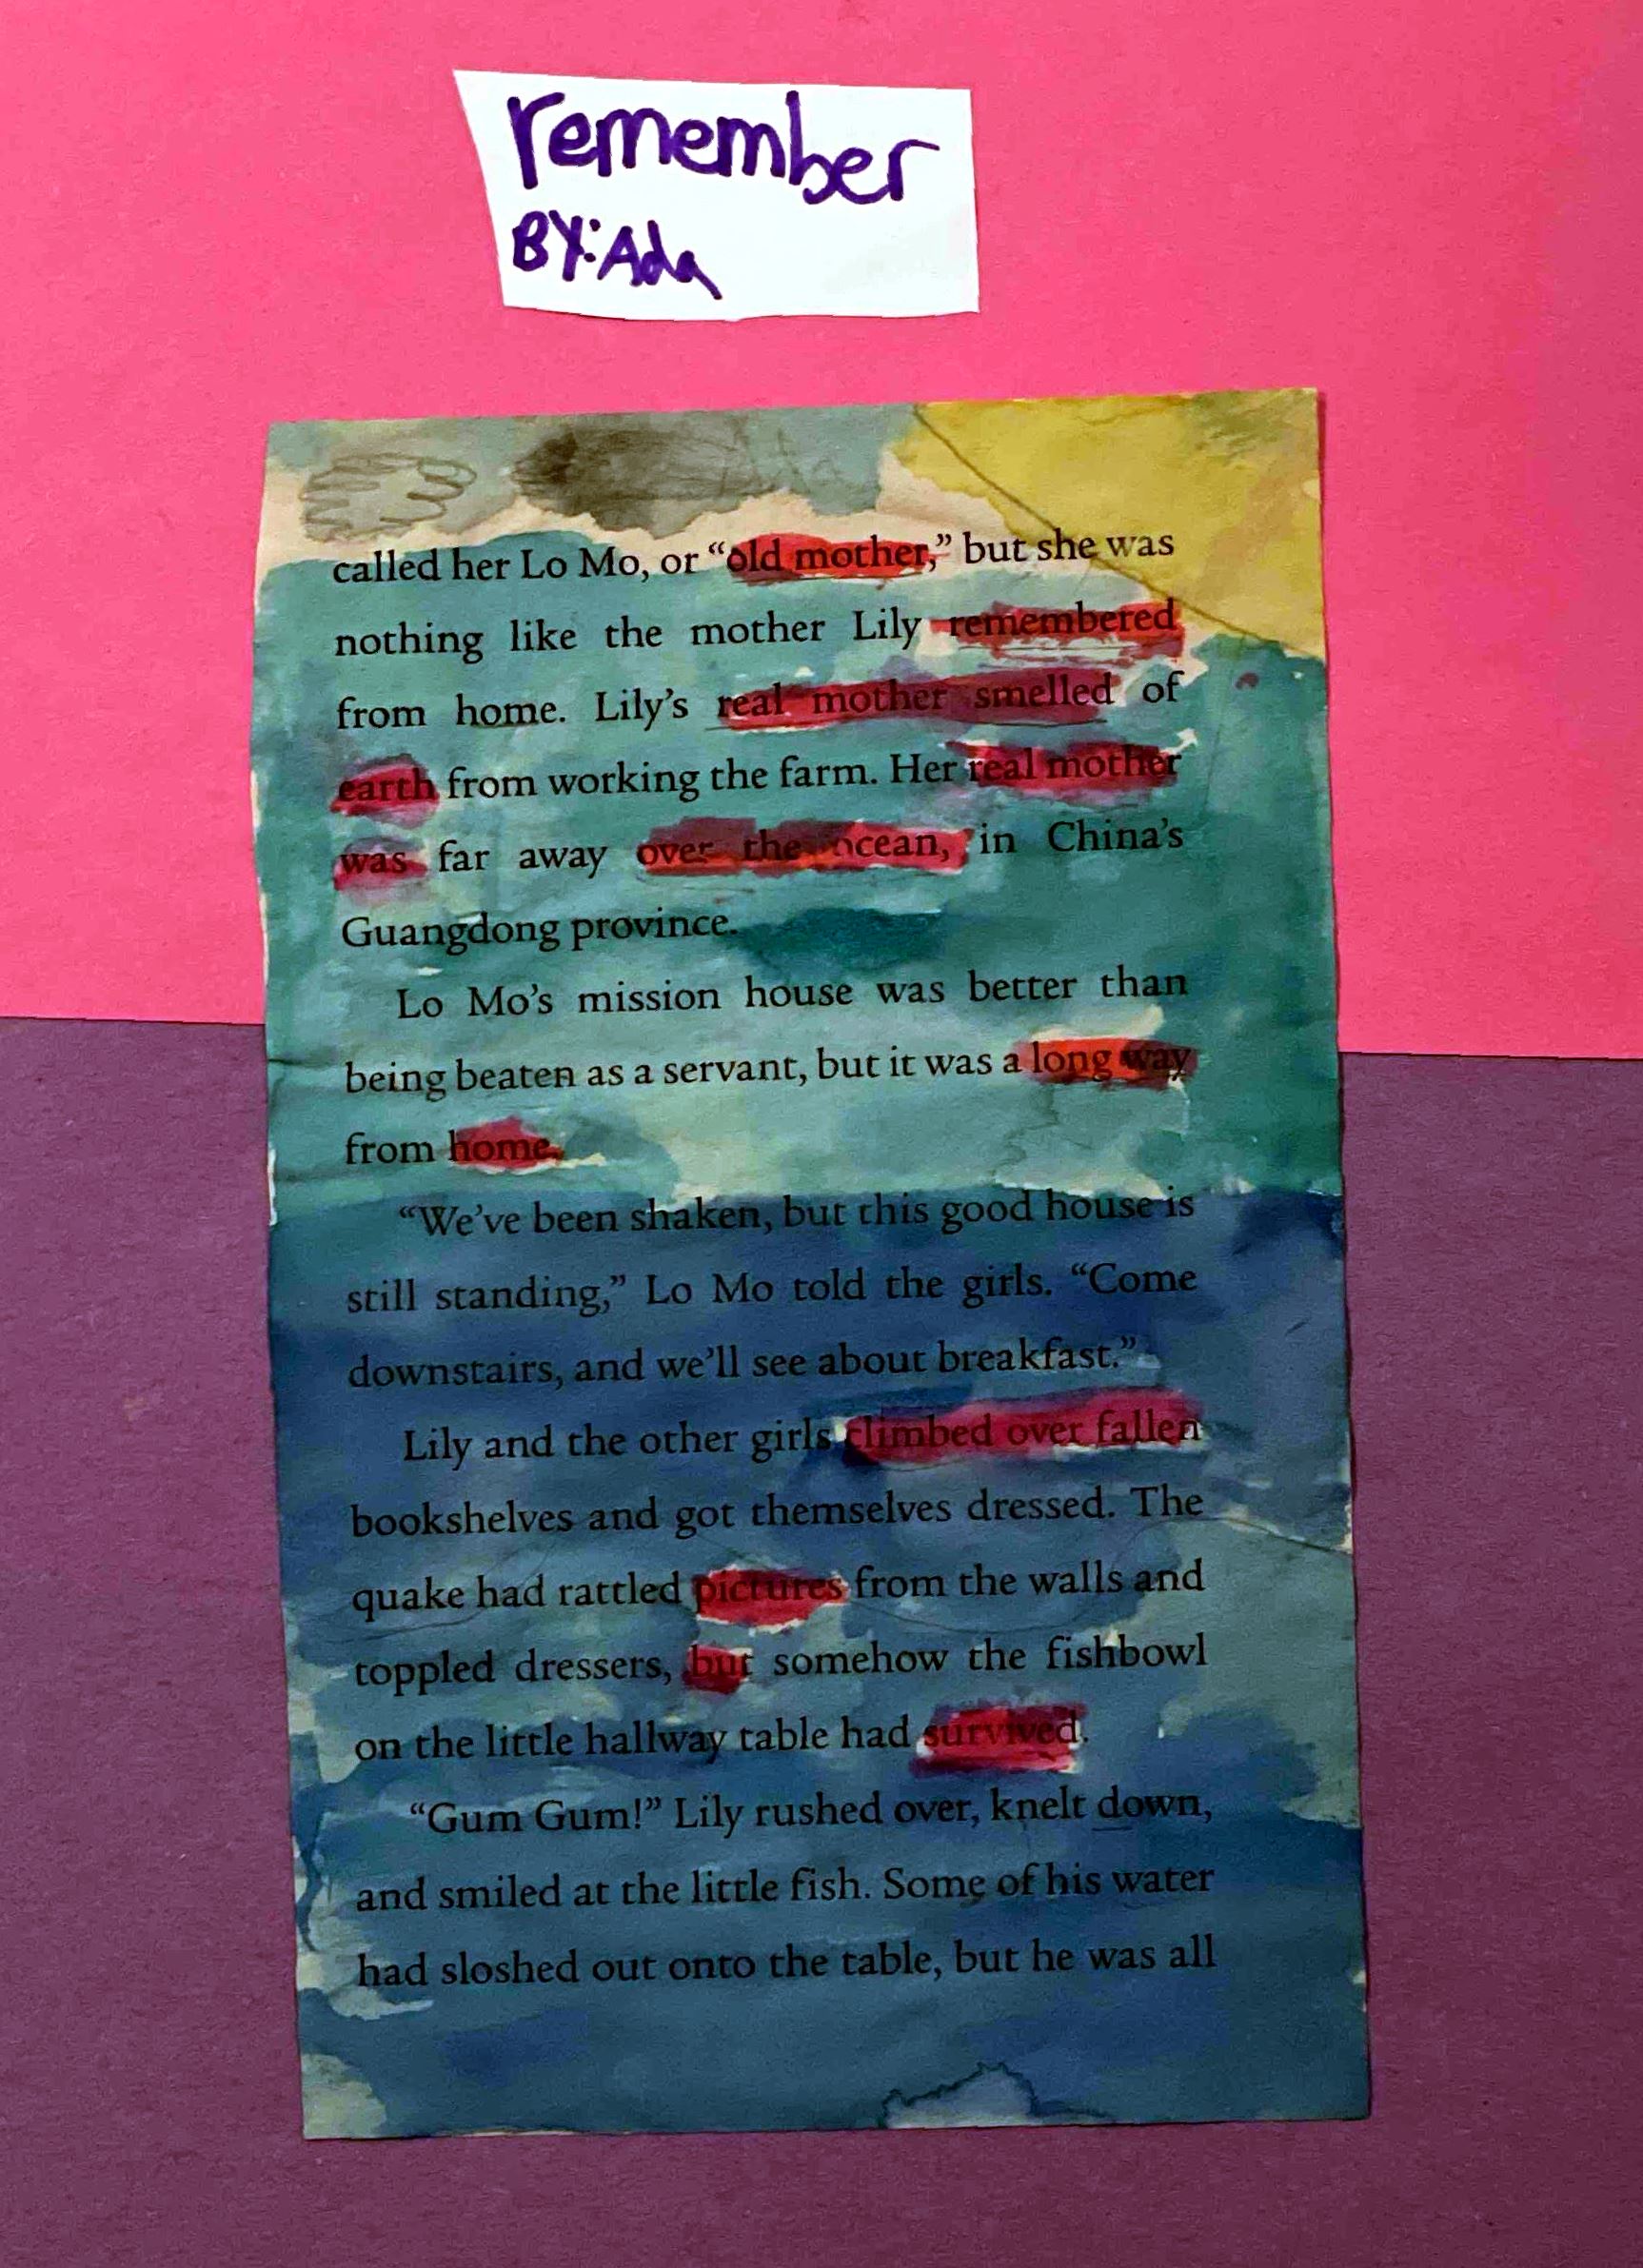 remember
BY: Ada
called her Lo Mo, or “old mother,” but she was
nothing like the mother Lily remembered
from home. Lily’s real mother smelled of
earth from working the farm. Her real mother
was far away over the ocean, in China’s
Guangdong province.
Lo Mo’s mission house was better than
being beaten as a servant, but it was a long way
from home.
“We’ve been shaken, but this good house is
still standing,” Lo Mo told the girls. “Come
downstairs, and we’ll see about breakfast.”
Lily and the other girls climbed over fallen
bookshelves and got themselves dressed. The
quake had rattled pictures from the walls and
toppled dressers, but somehow the fishbowl
on the little hallway table had survived.
“Gum Gum!” Lily rushed over, knelt down,
and smiled at the little fish. Some of his water
had sloshed out onto the table, but he was all